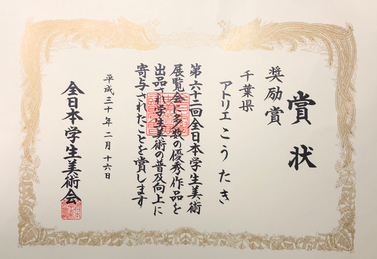 賞状
奨励賞
千葉県
アトリエこうたき
第六十二回全日本学生美術
展覧会に多数の優秀作品を
出品され学生美術の普及向上に
寄与されたことを賞します
平成三十年二月十六日
全日本学生美術会